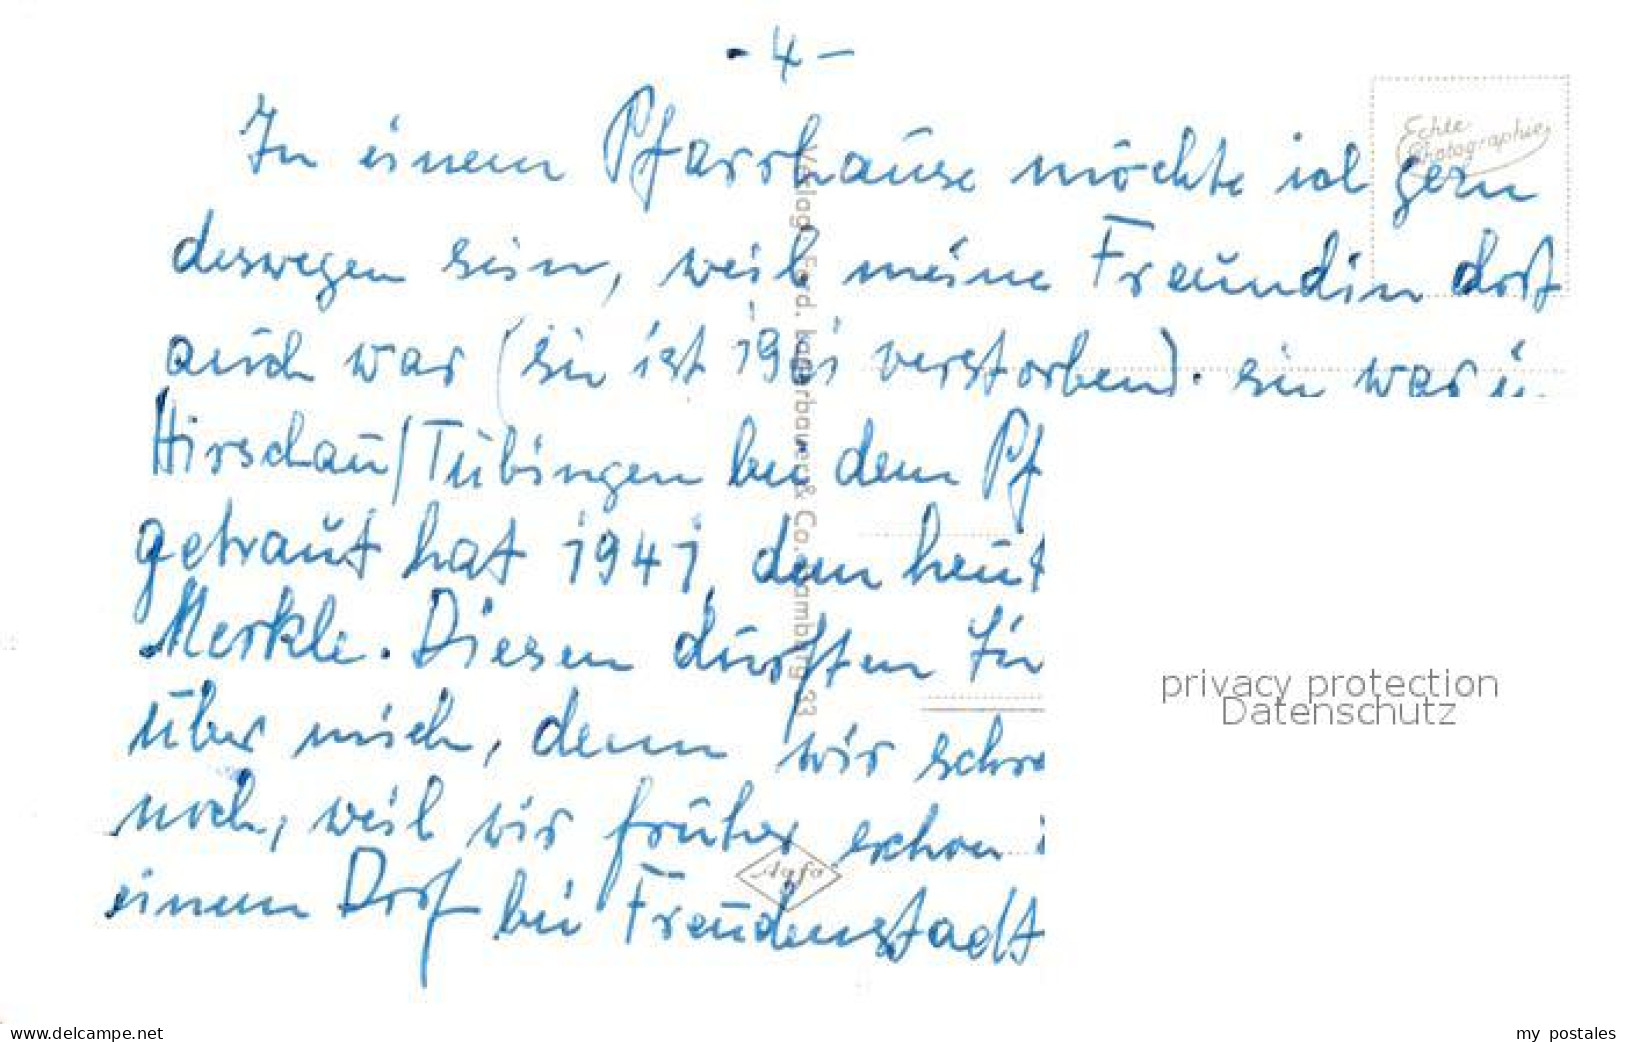 - 4 -
In einem Pfarrhause möchte ich gern
deswegen sein, weil meine Freundin dort
auch war (sie ist 1961 verstorben). sie war i.
Hirschau/Tübingen bei dem Pf
getraut hat 1941, dem heut
Merkle. Diesen dürften
über mich, denn wir schre
noch, weil wir früher schon i
einem Dorf bei Freudenstadt
Echte
Photographie
Verlag Ferd. Lagerbauer & Co. Hamburg 33
Agfa
privacy protection
Datenschutz
www.delcampe.net
my postales